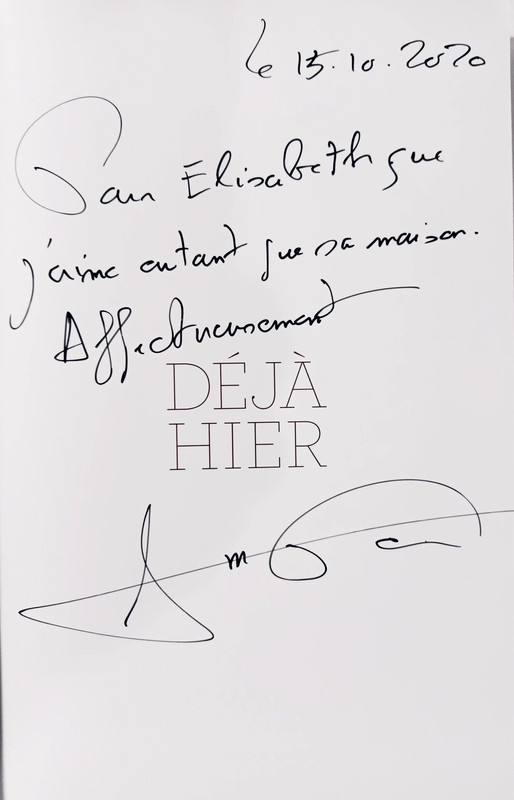 Le 15.10.2020
Pour Elisabeth que
j'aime autant que sa maison.
Affectueusement
DÉJÀ
HIER